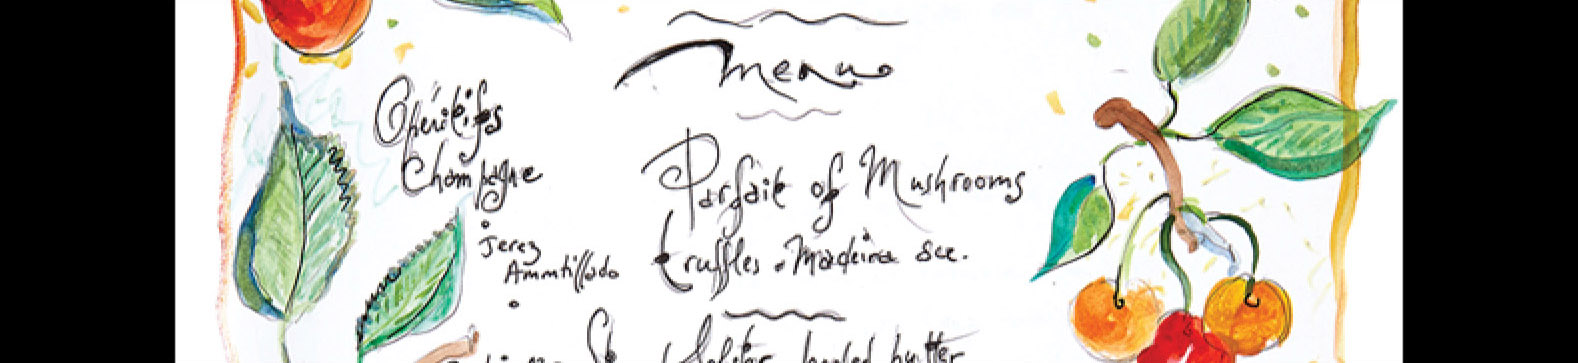 menu
Apéritifs
Champagne
Jerez
Ammtillado
Parfait of Mushrooms
truffles . Madeira sec.
butter